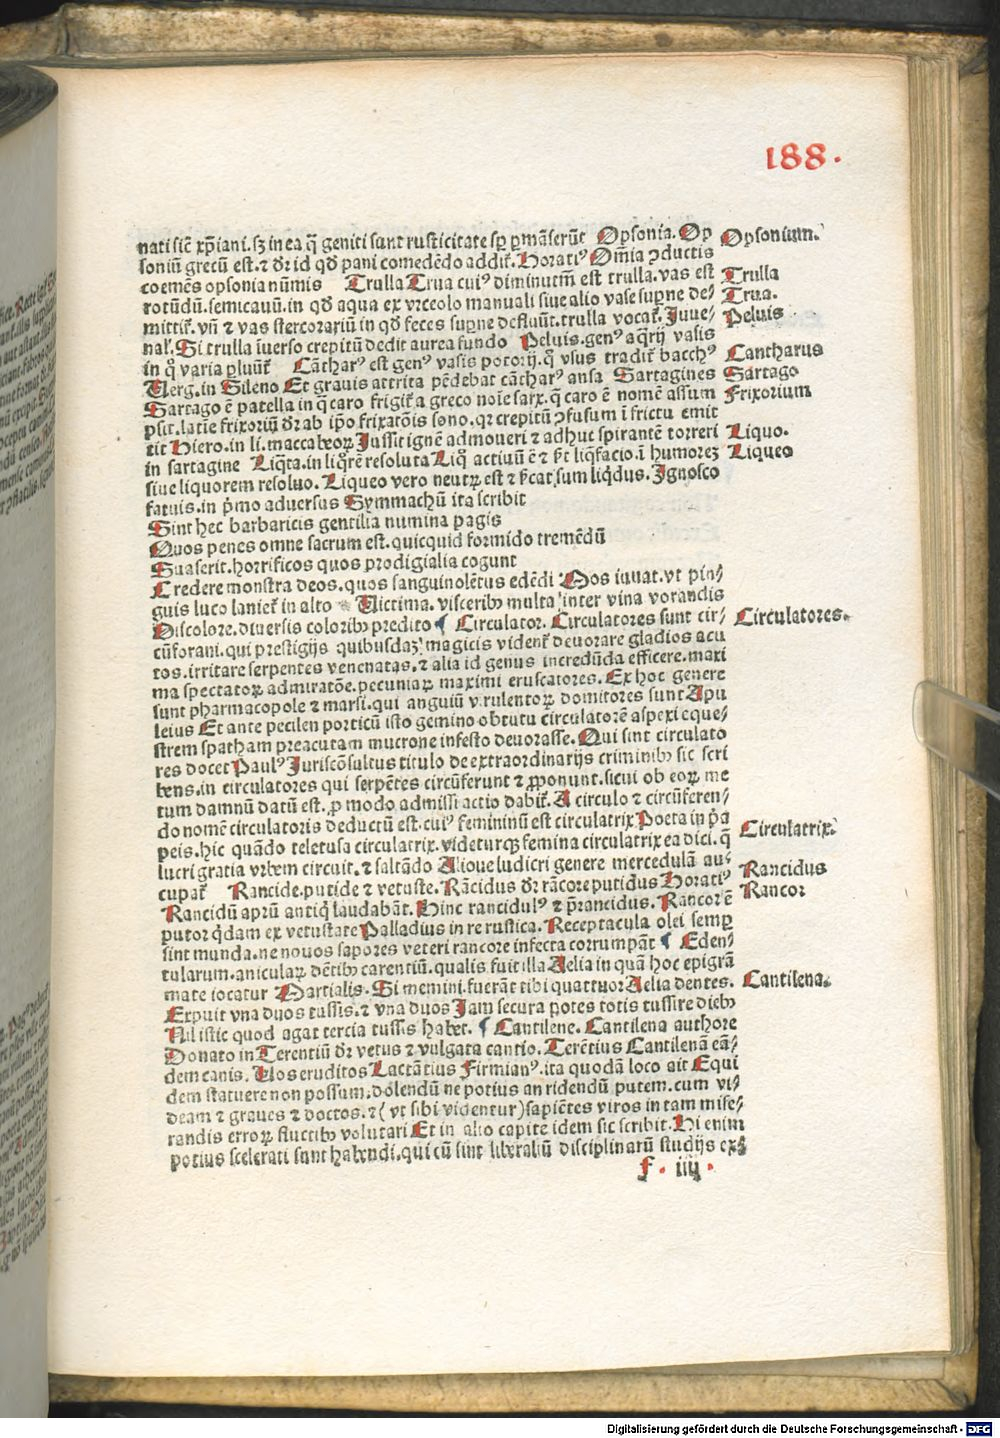 188.
nati sic̄ xp̄iani. sȝ in ea q̄ geniti sunt rusticitate sp̱ p̱māserūt Opsonia. Op Opsonium.
soniū grecū est. ⁊ dr̄ id qd̄ pani comedēdo addit̄. Horatiꝰ Om̄ia ꝯductis
coemēs opsonia nūmis Trulla Trua cuiꝰ diminutm̄ est trulla. vas est Trulla
rotūdū. semicauū. in qd̄ aqua ex vrceolo manuali siue alio vase sup̱ne de⸗ Trua.
mittit̄. vn̄ ⁊ vas stercorariū in qd̄ feces sup̱ne defluūt. trulla vocat̄. Juue⸗ Peluis
nal̓. Si trulla īuerso crepitū dedit aurea fundo Peluis. genꝰ aq̄rij vasis
in q̊ varia p̱luūt̄ Cātharꝰ est genꝰ vasis potorij. q̊ vsus tradit̄ bacchꝰ Cantharus
Verg. in Sileno Et grauis attrita pēdebat cātharꝰ ansa Sartagines Sartago
Sartago ē patella in q̄ caro frigit̄ a greco noīe sarx. q̄ caro ē nomē assum Frixorium
psit. latīe frixoriū dr̄ ab ip̄o frixatōis sono. qꝛ crepitū ꝯfusum ī frictu emit
tit Hiero. in li. maccabeoꝝ Jussit ignē admoueri ⁊ adhuc spirantē torreri Liquo.
in sartagine Liq̄ta. in liq̄rē resoluta Liq̊ actiuū ē ⁊ s̄t liq̄facio. ī humorē Liqueo
siue liquorem resoluo. Liqueo vero neutꝝ est ⁊ s̄cat̓ sum liq̄dus. Ignosco
fatuis. in p̄mo aduersus Symmachū ita scribit
Sint hec barbaricis gentilia numina pagis
Quos penes omne sacrum est. quicquid formido tremēdū
Suaserit. horrificos quos prodigialia cogunt
Credere monstra deos. quos sanguinolētus edēdi Mos iuuat. vt pin⸗
guis luco laniet̄ in alto Victima. visceribꝰ multa inter vina vorandis
Discolore. diuersis coloribꝰ predito Circulator. Circulatores sunt cir⸗ Circulatores.
cūforani. qui prestigijs quibusdaȝ magicis vident̄ deuorare gladios acu
tos. irritare serpentes venenatas. ⁊ alia id genus incredūda efficere. maxi
ma spectatoꝝ admiratōe. pecuniaꝝ maximi eruscatores. Ex hoc genere
sunt pharmacopole ⁊ marsi. qui anguiū virulentoꝝ domitores sunt Apu
leius Et ante pecilen porticū isto gemino obtutu circulatorē aspexi eque⸗
strem spatham preacutam mucrone infesto deuorasse. Qui sint circulato
res docet Paulꝰ Juriscōsultus titulo de extraordinarijs criminibꝰ sic scri
bens. in circulatores qui serpētes circūferunt ⁊ ꝓponunt. si cui ob eoꝝ me
tum damnū datū est. ꝓ modo admissi actio dabit̄. A circulo ⁊ circūferen⸗
do nomē circulatoris deductū est. cuiꝰ femininū est circulatrix Poeta in p̄a Circulatrix.
peis. hic quādo teletusa circulatrix. videturqꝫ femina circulatrix ea dici. q̄
lucri gratia vrbem circuit. ⁊ saltādo Alioue ludicri genere mercedulā au⸗ Rancidus
cupat̄ Rancide. putide ⁊ vetuste. Rācidus dr̄ rācore putidus Horatiꝰ Rancor
Rancidū aprū antiq̄ laudabāt. Hinc rancidulꝰ ⁊ p̄rancidus. Rancor ē
putor q̄dam ex vetustate Palladius in re rustica. Receptacula olei semp̱
sint munda. ne nouos sapores veteri rancore infecta corrumpāt Eden⸗
tularum. aniculaꝝ dētibꝰ carentiū. qualis fuit illa Aelia in quā hoc epigrā
mate iocatur Martialis. Si memini. fuerāt tibi quattuor Aelia dentes. Cantilena.
Expuit vna duos tussis. ⁊ vna duos Jam secura potes totis tussire diebꝰ
Nil istic quod agat tercia tussis habet. Cantilene. Cantilena authore
Donato in Terentiū dr̄ vetus ⁊ vulgata cantio. Terētius Cantilenā eā⸗
dem canis. Uos eruditos Lactātius Firmianꝰ. ita quodā loco ait Equi
dem statuere non possum. dolendū ne potius an ridendū putem. cum vi⸗
deam ⁊ graues ⁊ doctos. ⁊ (vt sibi videntur) sapiētes viros in tam mise⸗
randis erroꝝ fluctibꝰ volutari Et in alio capite idem sic scribit. Hi enim
potius scelerati sunt habendi. qui cū sint liberaliū disciplinarū studijs ex⸗
f. iiij.
Digitalisierung gefördert durch die Deutsche Forschungsgemeinschaft - DFG